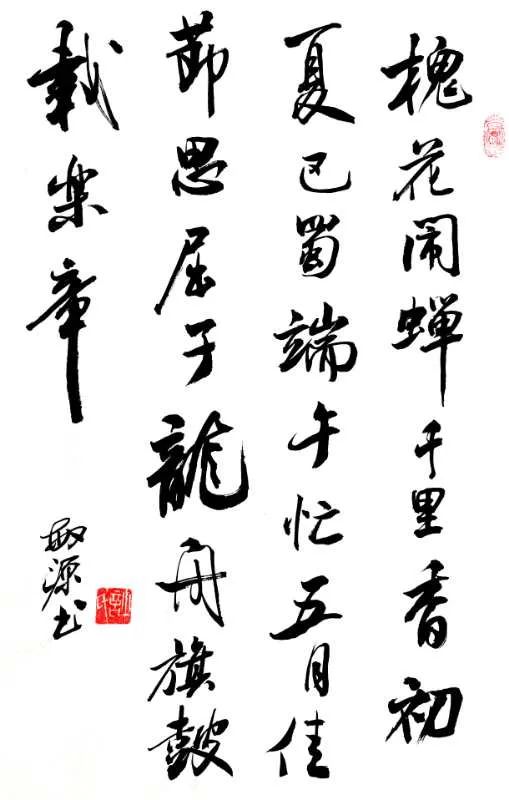 槐花闹蝉千里香初
夏巴蜀端午忙五月佳
節思屈子龍舟旗鼓
載樂章
敏源书